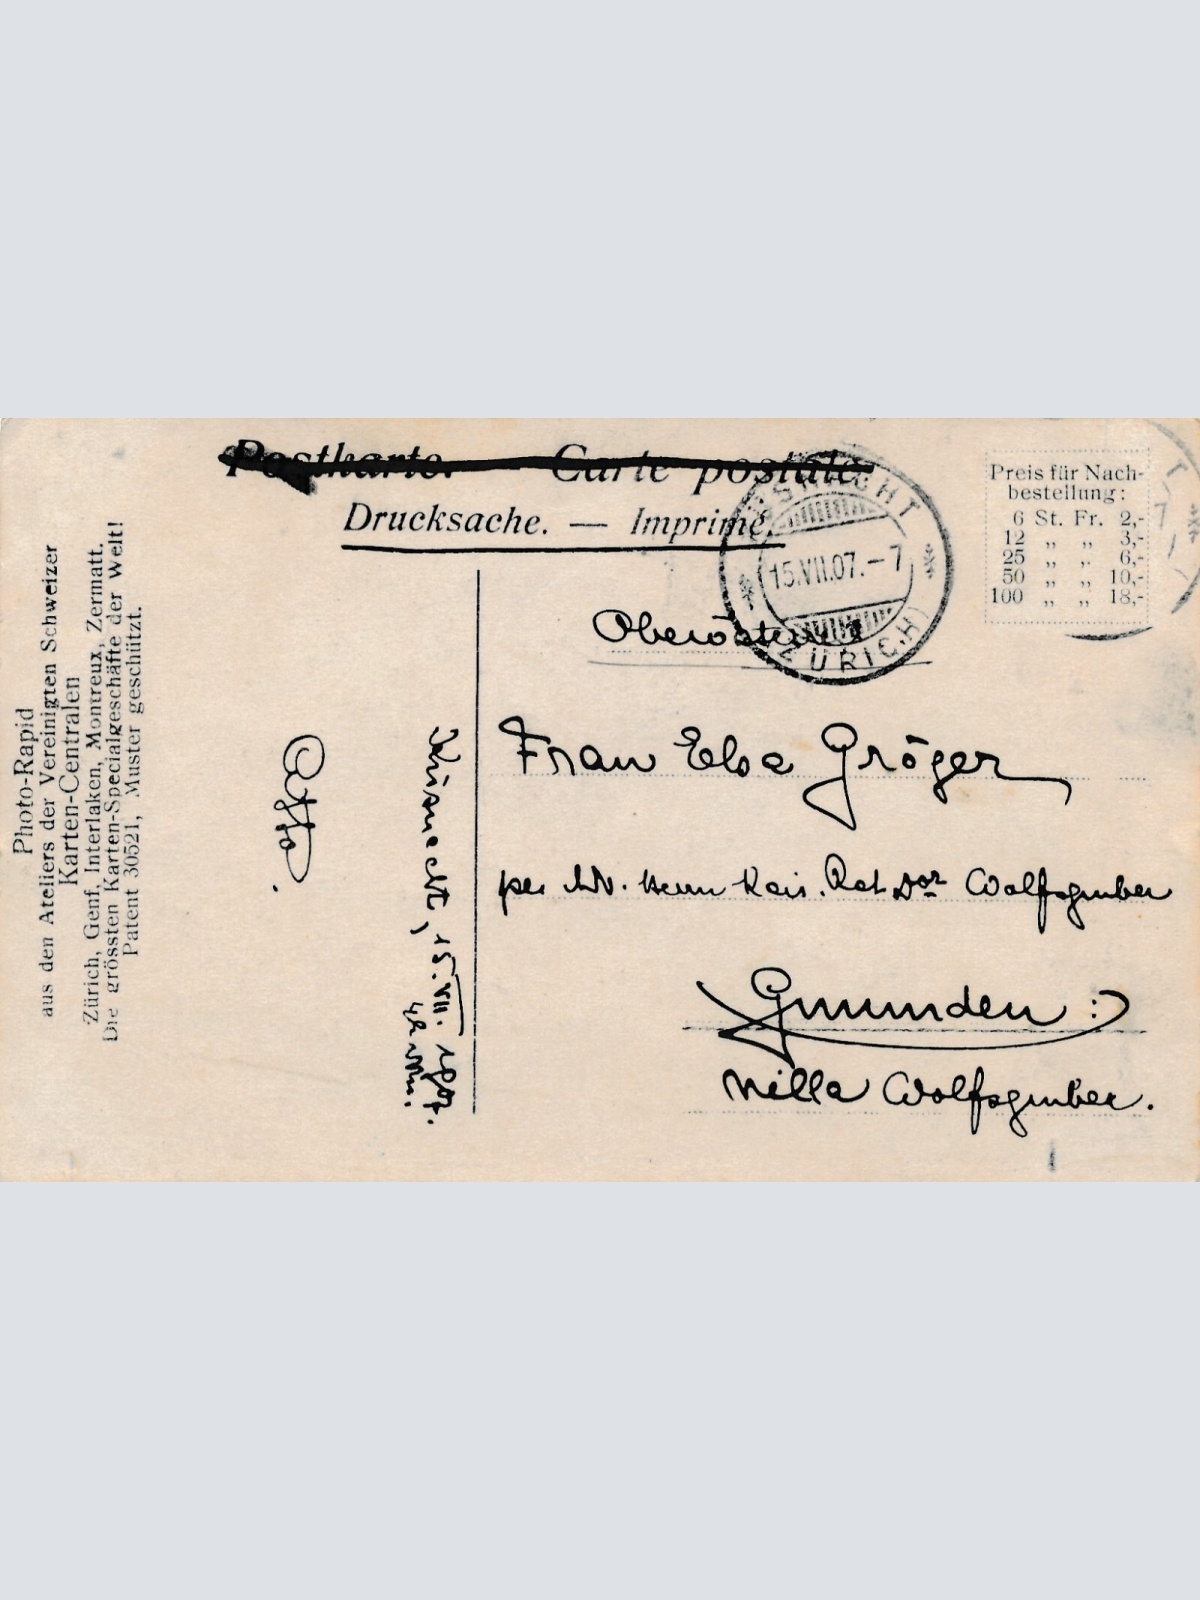 Postkarte. — Carte postale.
Drucksache. — Imprimé.
KÜSNACHT
15.VII.07.–7
(ZÜRICH)
Preis für Nach-
bestellung:
6 St. Fr. 2,-
12 „ „ 3,-
25 „ „ 6,-
50 „ „ 10,-
100 „ „ 18,-
Oberösterr
Frau Elsa Gröger
per Herrn Kais. Rat Dor Wolfsgruber
Gmunden :
Villa Wolfsgruber.
Küsnacht, 15. VII. 1907.
Otto.
Photo-Rapid
aus den Ateliers der Vereinigten Schweizer
Karten-Centralen
Zürich, Genf, Interlaken, Montreux, Zermatt.
Die grössten Karten-Specialgeschäfte der Welt!
Patent 30521, Muster geschützt.